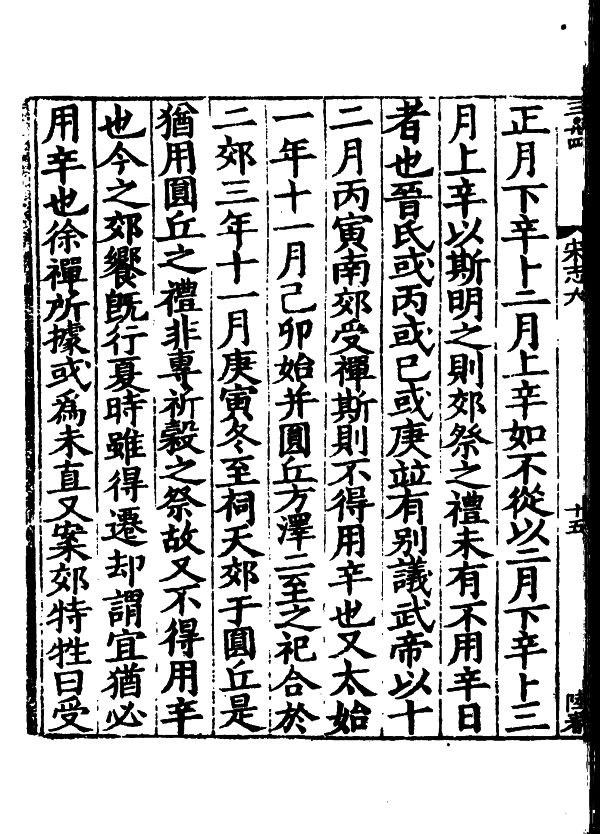 宋志六
十五
正月下辛卜二月上辛如不從以二月下辛卜三
月上辛以斯明之則郊祭之禮未有不用辛日
者也晉氏或丙或巳或庚並有别議武帝以十
二月丙寅南郊受禪斯則不得用辛也又太始
一年十一月己卯始并圓丘方澤二至之祀合於
二郊三年十一月庚寅冬至祠天郊于圓丘是
猶用圓丘之禮非專祈穀之祭故又不得用辛
也今之郊饗旣行夏時雖得遷却謂宜猶必
用辛也徐禪所據或爲未直又案郊特牲曰受